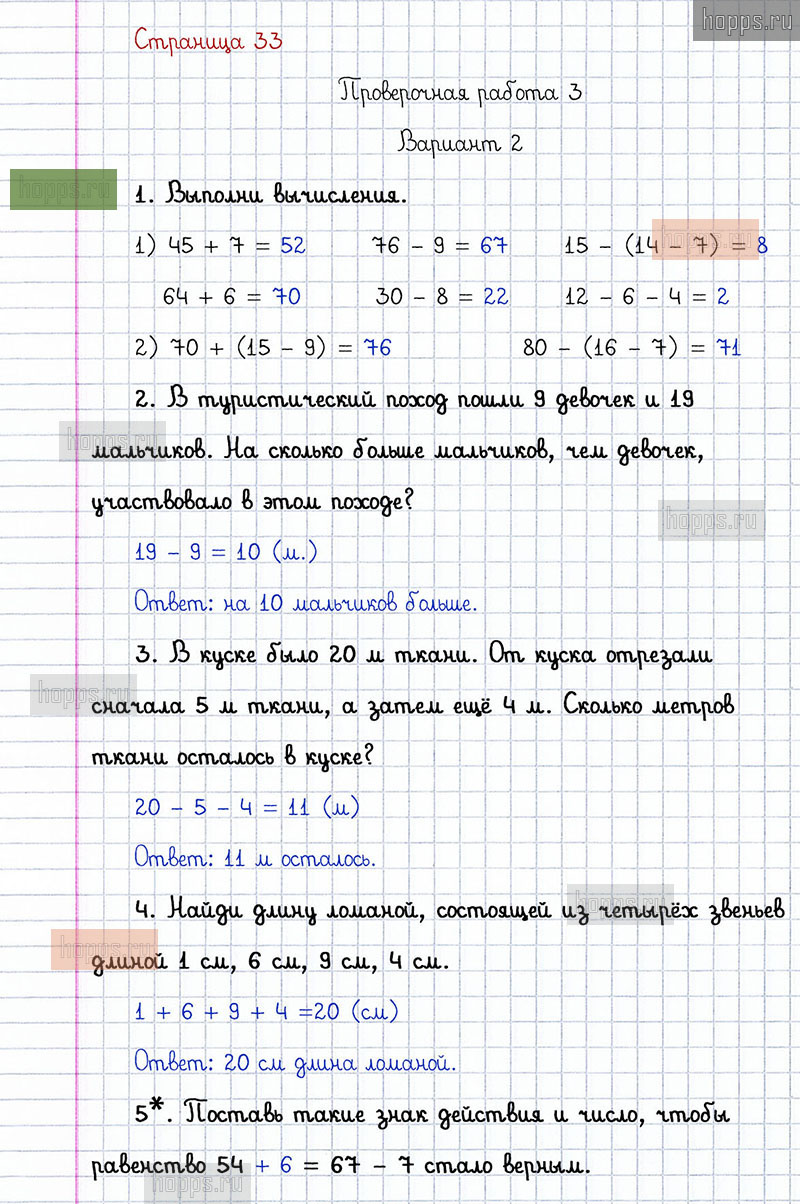 hopps.ru
Страница 33
Проверочная работа 3
Вариант 2
hopps.ru
1. Выполни вычисления.
1) 45 + 7 = 52 76 - 9 = 67 15 - (14 - 7) = 8
64 + 6 = 70 30 - 8 = 22 12 - 6 - 4 = 2
2) 70 + (15 - 9) = 76 80 - (16 - 7) = 71
2. В туристический поход пошли 9 девочек и 19
hopps.ru
мальчиков. На сколько больше мальчиков, чем девочек,
участвовало в этом походе?
hopps.ru
19 - 9 = 10 (м.)
Ответ: на 10 мальчиков больше.
3. В куске было 20 м ткани. От куска отрезали
hopps.ru
сначала 5 м ткани, а затем ещё 4 м. Сколько метров
ткани осталось в куске?
20 - 5 - 4 = 11 (м)
Ответ: 11 м осталось.
hopps.ru
4. Найди длину ломаной, состоящей из четырёх звеньев
hopps.ru
длиной 1 см, 6 см, 9 см, 4 см.
1 + 6 + 9 + 4 =20 (см)
Ответ: 20 см длина ломаной.
5*. Поставь такие знак действия и число, чтобы
равенство 54 + 6 = 67 - 7 стало верным.
hopps.ru